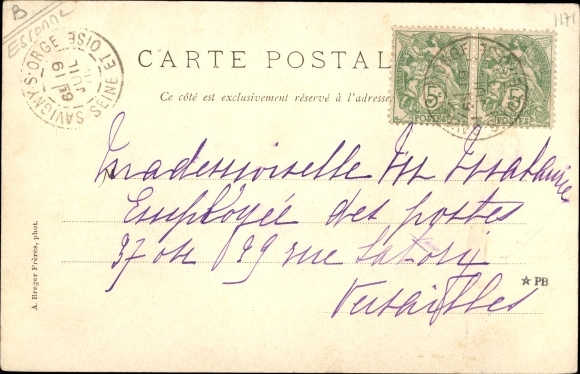 B
Essonne
1171
SAVIGNY-S-ORGE SEINE-ET-OISE
19
JUIL
CARTE POSTALE
Ce côté est exclusivement réservé à l'adresse
5c 5c
POSTES POSTES
Mademoiselle
Employée des postes
37 ou 39 rue Satory
Versailles
A. Breger Frères, phot.
★ PB